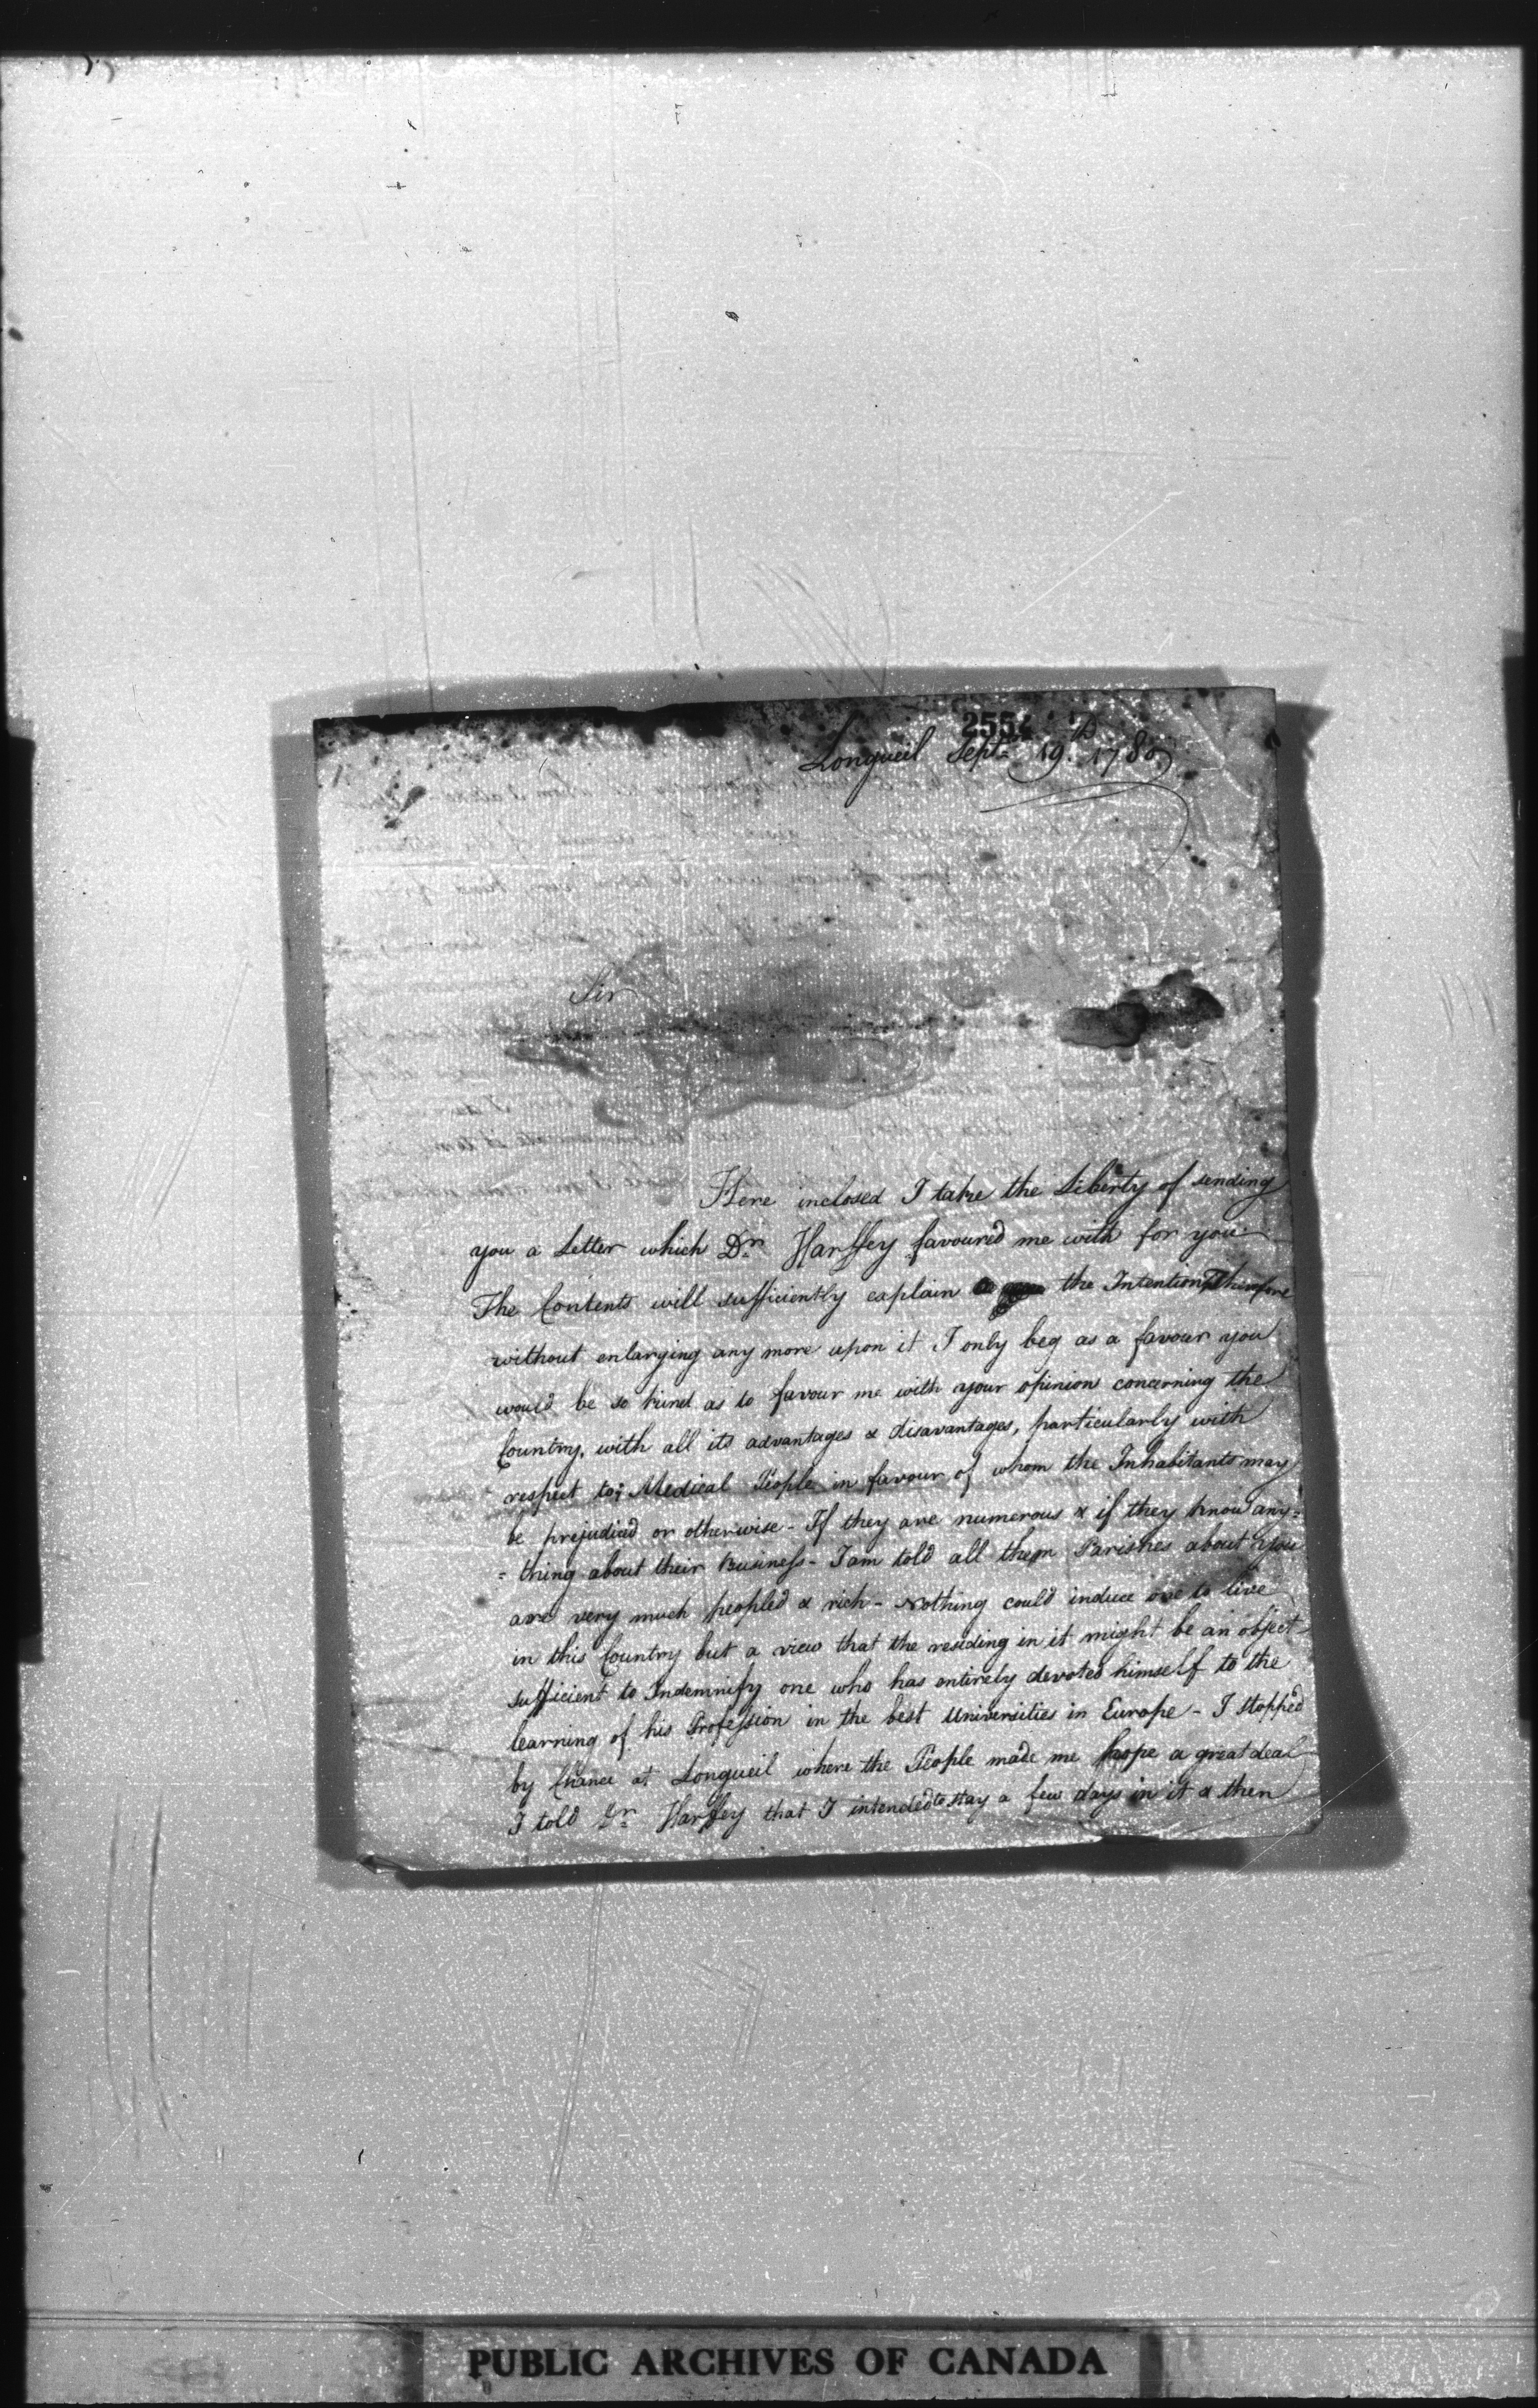 2554
Longueil Sept. 19th 1780
Sir
Here inclosed I take the Liberty of sending
you a Letter which Dr. Harffey favoured me with for you
The Contents will sufficiently explain the Intention, Therefore
without enlarging any more upon it I only beg as a favour you
would be so kind as to favour me with your opinion concerning the
Country, with all its advantages & disavantages, particularly with
respect to; Medical People in favour of whom the Inhabitants may
be prejudiced or otherwise - If they are numerous & if they know any=
=thing about their Business - I am told all them Parishes about you
are very much peopled & rich - Nothing could induce one to live
in this Country but a view that the residing in it might be an object
sufficient to Indemnify one who has entirely devoted himself to the
learning of his Profession in the best Universities in Europe - I stopped
by Chance at Longueil where the People made me hope a great deal
I told Dr. Harffey that I intended to stay a few days in it & then
PUBLIC ARCHIVES OF CANADA